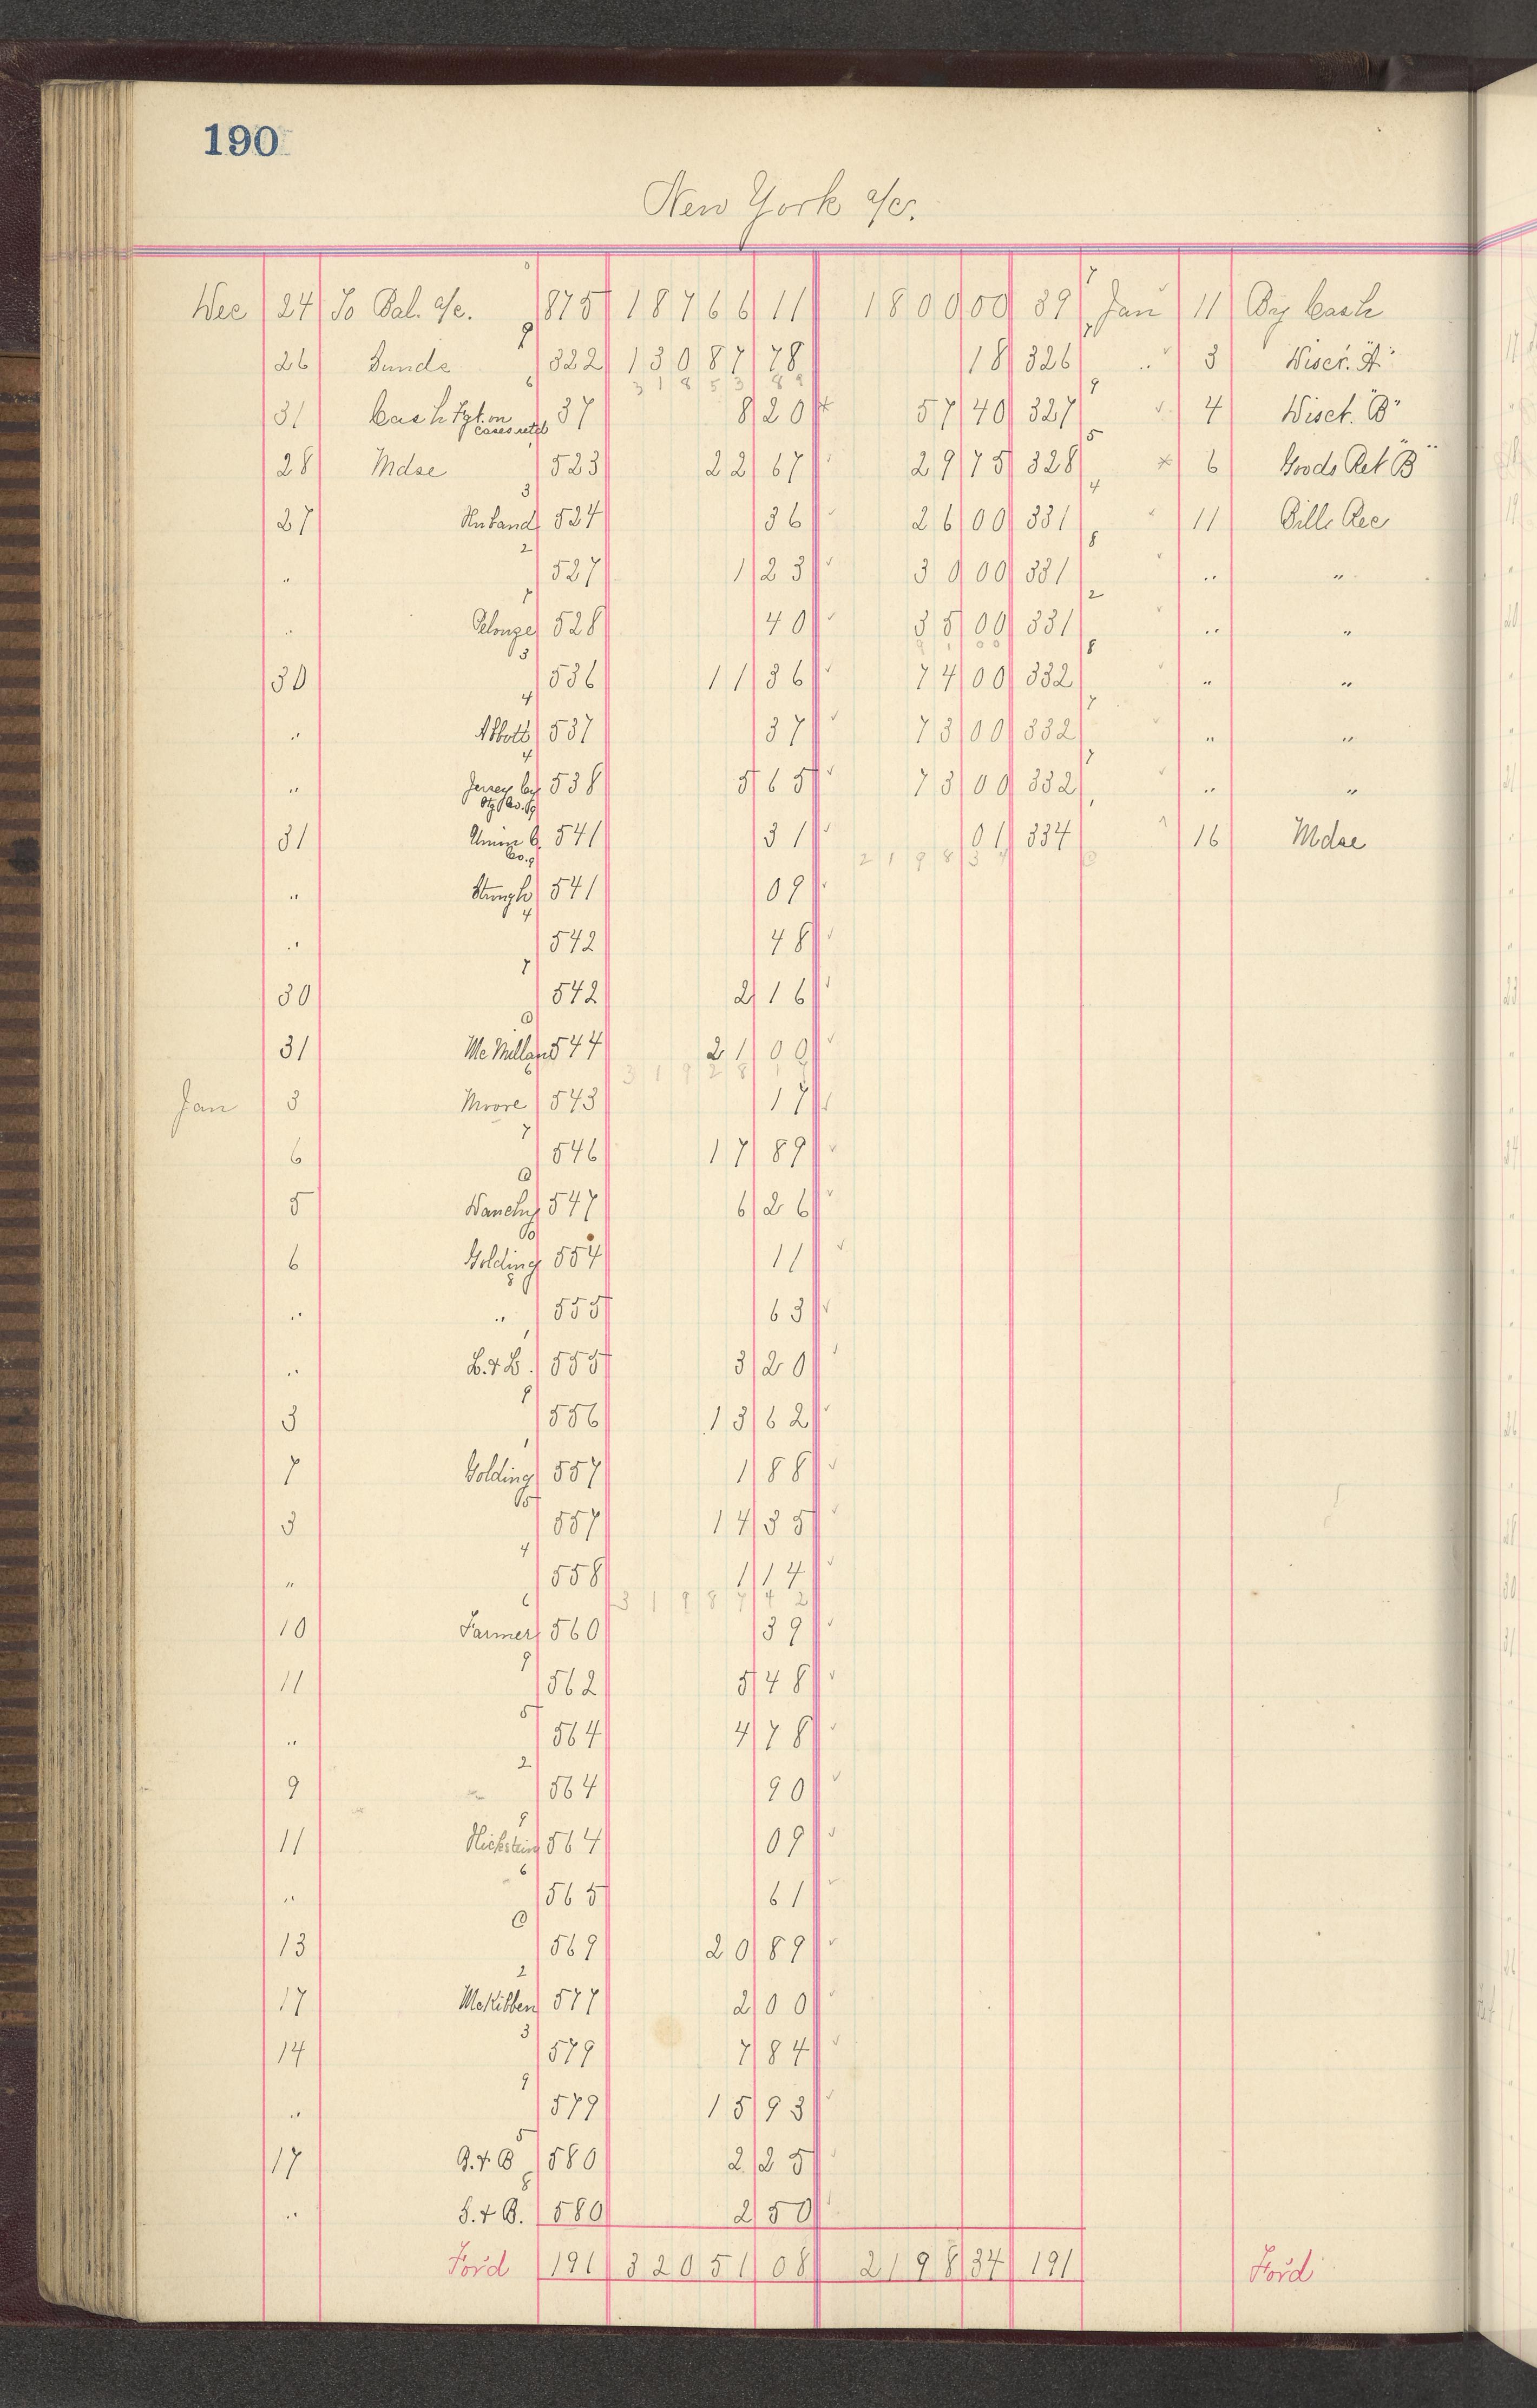 190
New York a/c.
Dec 24 To Bal. a/c. 875 18766 11 1800 00 39 Jan 11 By Cash
26 Sunds 322 13087 78 18 326 " 3 Disct. "A"
31 85 3 89
31 Cash Fgt. on cases retd 37 8 20 * 57 40 327 4 Disct. "B"
28 Mdse 523 22 67 29 75 328 * 6 Goods Ret "B"
27 Huband 524 36 26 00 331 11 Bills Rec
" 527 1 23 30 00 331 " "
" Pelouze 528 40 35 00 331 " "
30 536 11 36 74 00 332 " "
" Abbott 537 37 73 00 332 " "
" Jersey City Stg Co. 538 5 65 73 00 332 " "
31 Union C. Co. 541 31 01 334 16 Mdse
2198 34
" 541 09
" 542 48
30 542 2 16
31 McMillan 544 21 00
Jan 3 Moore 543 17
6 546 17 89
5 547 6 26
6 Golding 554 11
" " 555 63
" 555 3 20
3 556 13 62
7 Golding 557 1 88
3 557 14 35
" 558 1 14
31987 42
10 Farmer 560 39
11 562 5 48
" 564 4 78
9 564 90
11 Hickstein 564 09
" 565 61
13 569 20 89
17 McKibben 577 2 00
14 579 7 84
" 579 15 93
17 580 2 25
" S. & B. 580 2 50
Ford 191 32051 08 2198 34 191 Ford